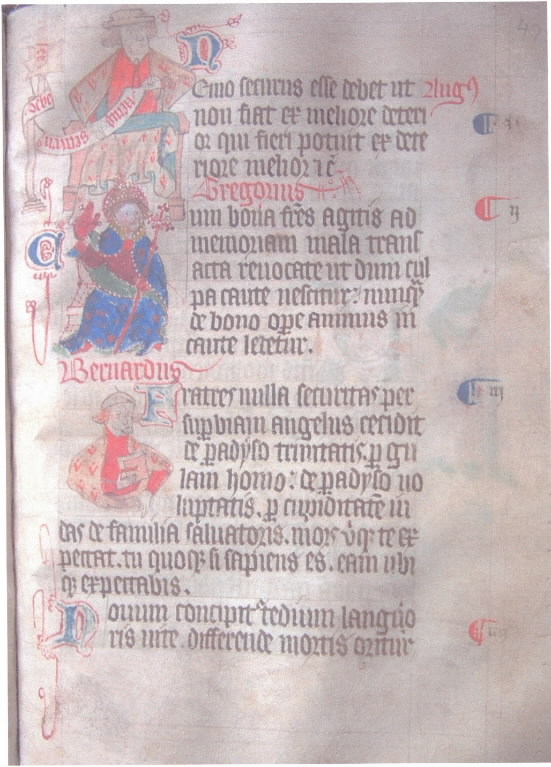 Nemo securus esse debet ut Augꝰ
non fiat ex meliore deteri
or qui fieri potuit ex dete
riore melior ⁊c̄
Gregorius
Cum bona fr̄es agitis ad
memoriam mala trans
acta reuocate ut dum cul
pa caute nescitur: nunqͣ
de bono oꝑe animus in
caute letetur.
Bernardus
Fratres nulla securitas per
suꝑbiam angelus cecidit
de ꝑadyso trinitatis. ꝑ gu
lam homo: de ꝑadyso uo
luptatis. ꝑ cupiditatē iu
das de familia saluatoris. mors
pectat. tu quoqꝫ si sapiens es. eam ubi
qꝫ expectabis.
Nouum concipit tedium
ris differende mortis oritur